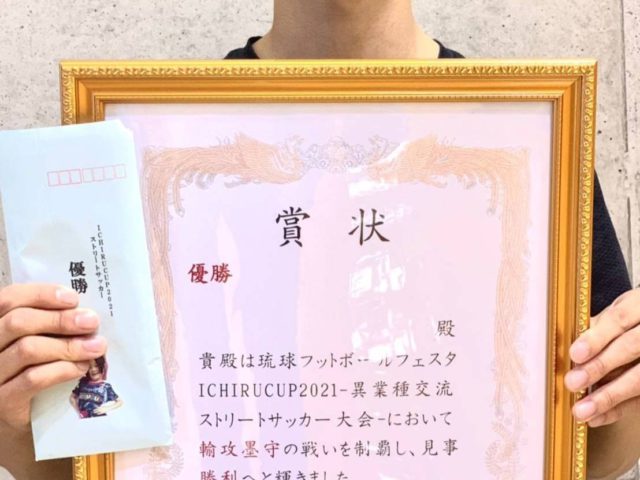 ICHIRUCUP2021
ストリートサッカー
優勝
賞状
優勝
殿
貴殿は琉球フットボールフェスタ
ICHIRUCUP2021-異業種交流
ストリートサッカー大会-において
輸攻墨守の戦いを制覇し、見事
勝利へと輝きました